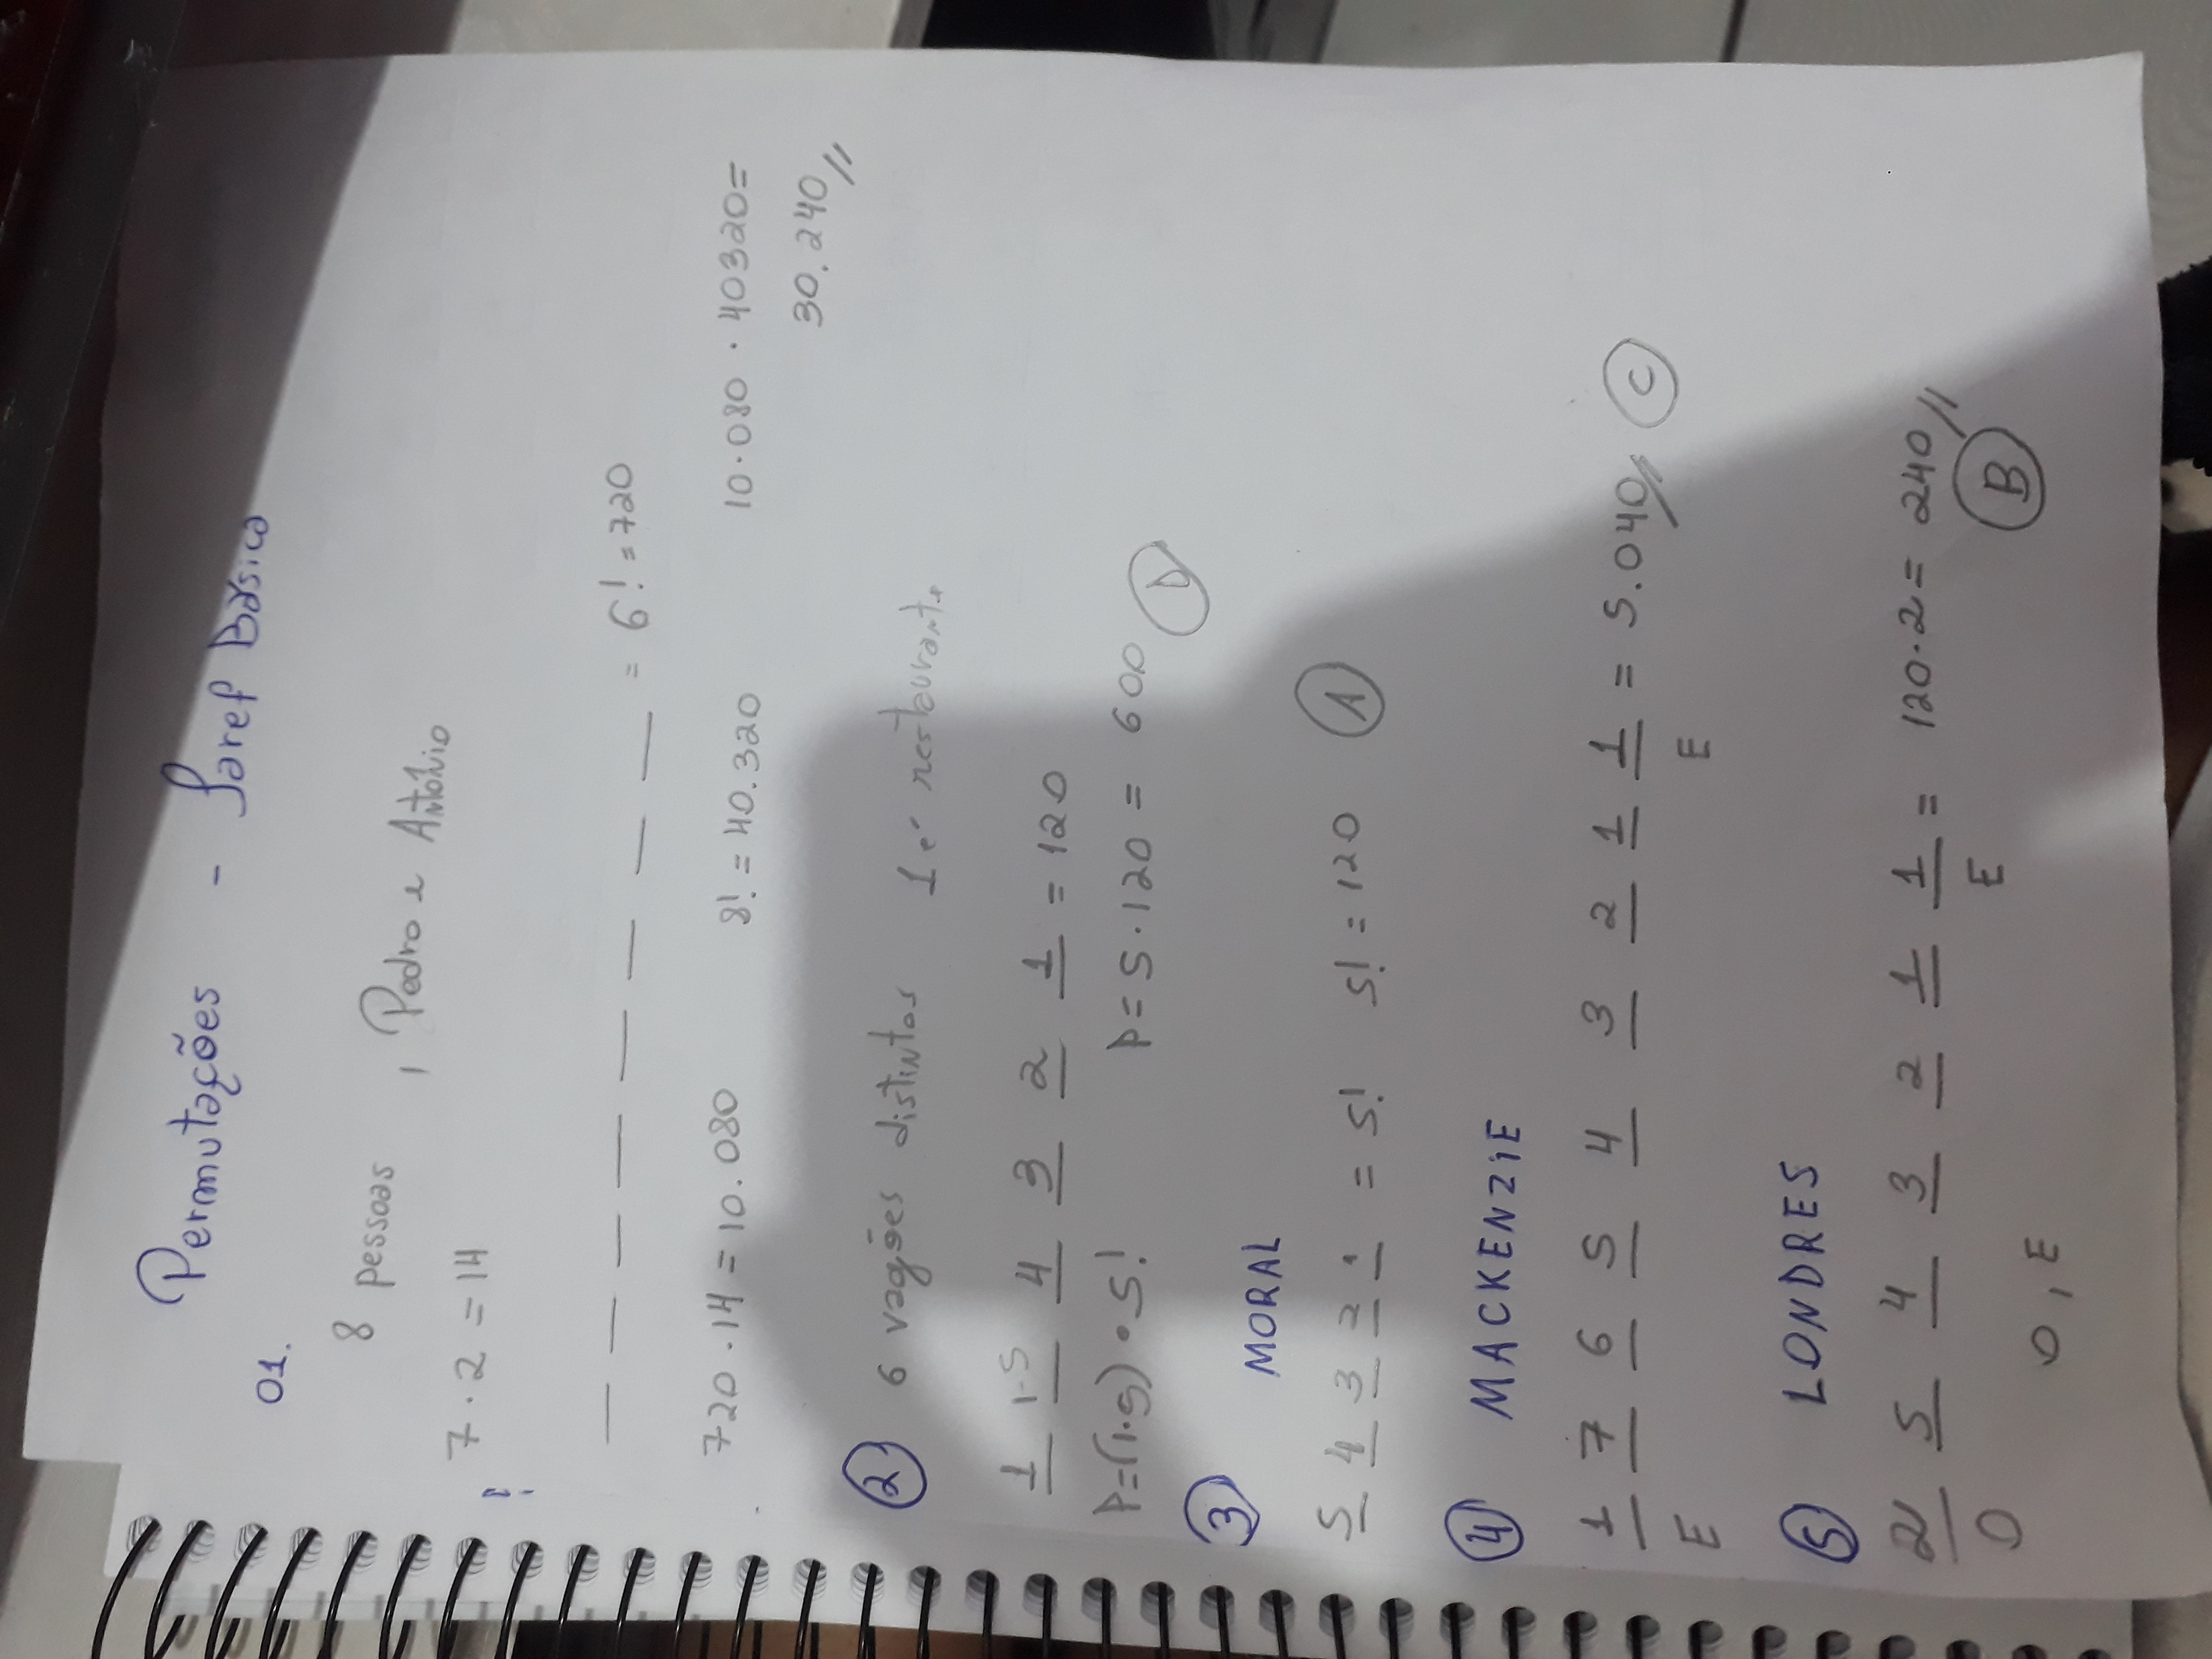 Permutações - Taref Básica
01.
8 pessoas , Pedro e António
7 · 2 = 14
= 6! = 720
720 . 14 = 10.080 8! = 40.320 10.080 · 40320 =
30.240 //
2 6 vagões distintos 1 é restaurante
1 1-5 4 3 2 1 = 120
P=(1.5) • 5! P= 5.120 = 600 D
3
MORAL
5 4 3 2 1 = 5! 5! = 120 A
4 MACKENZiE
1 7 6 5 4 3 2 1 1 = 5.040 // C
E E
5 LONDRES
2 5 4 3 2 1 1 = 120.2 = 240 //
O E B
O , E